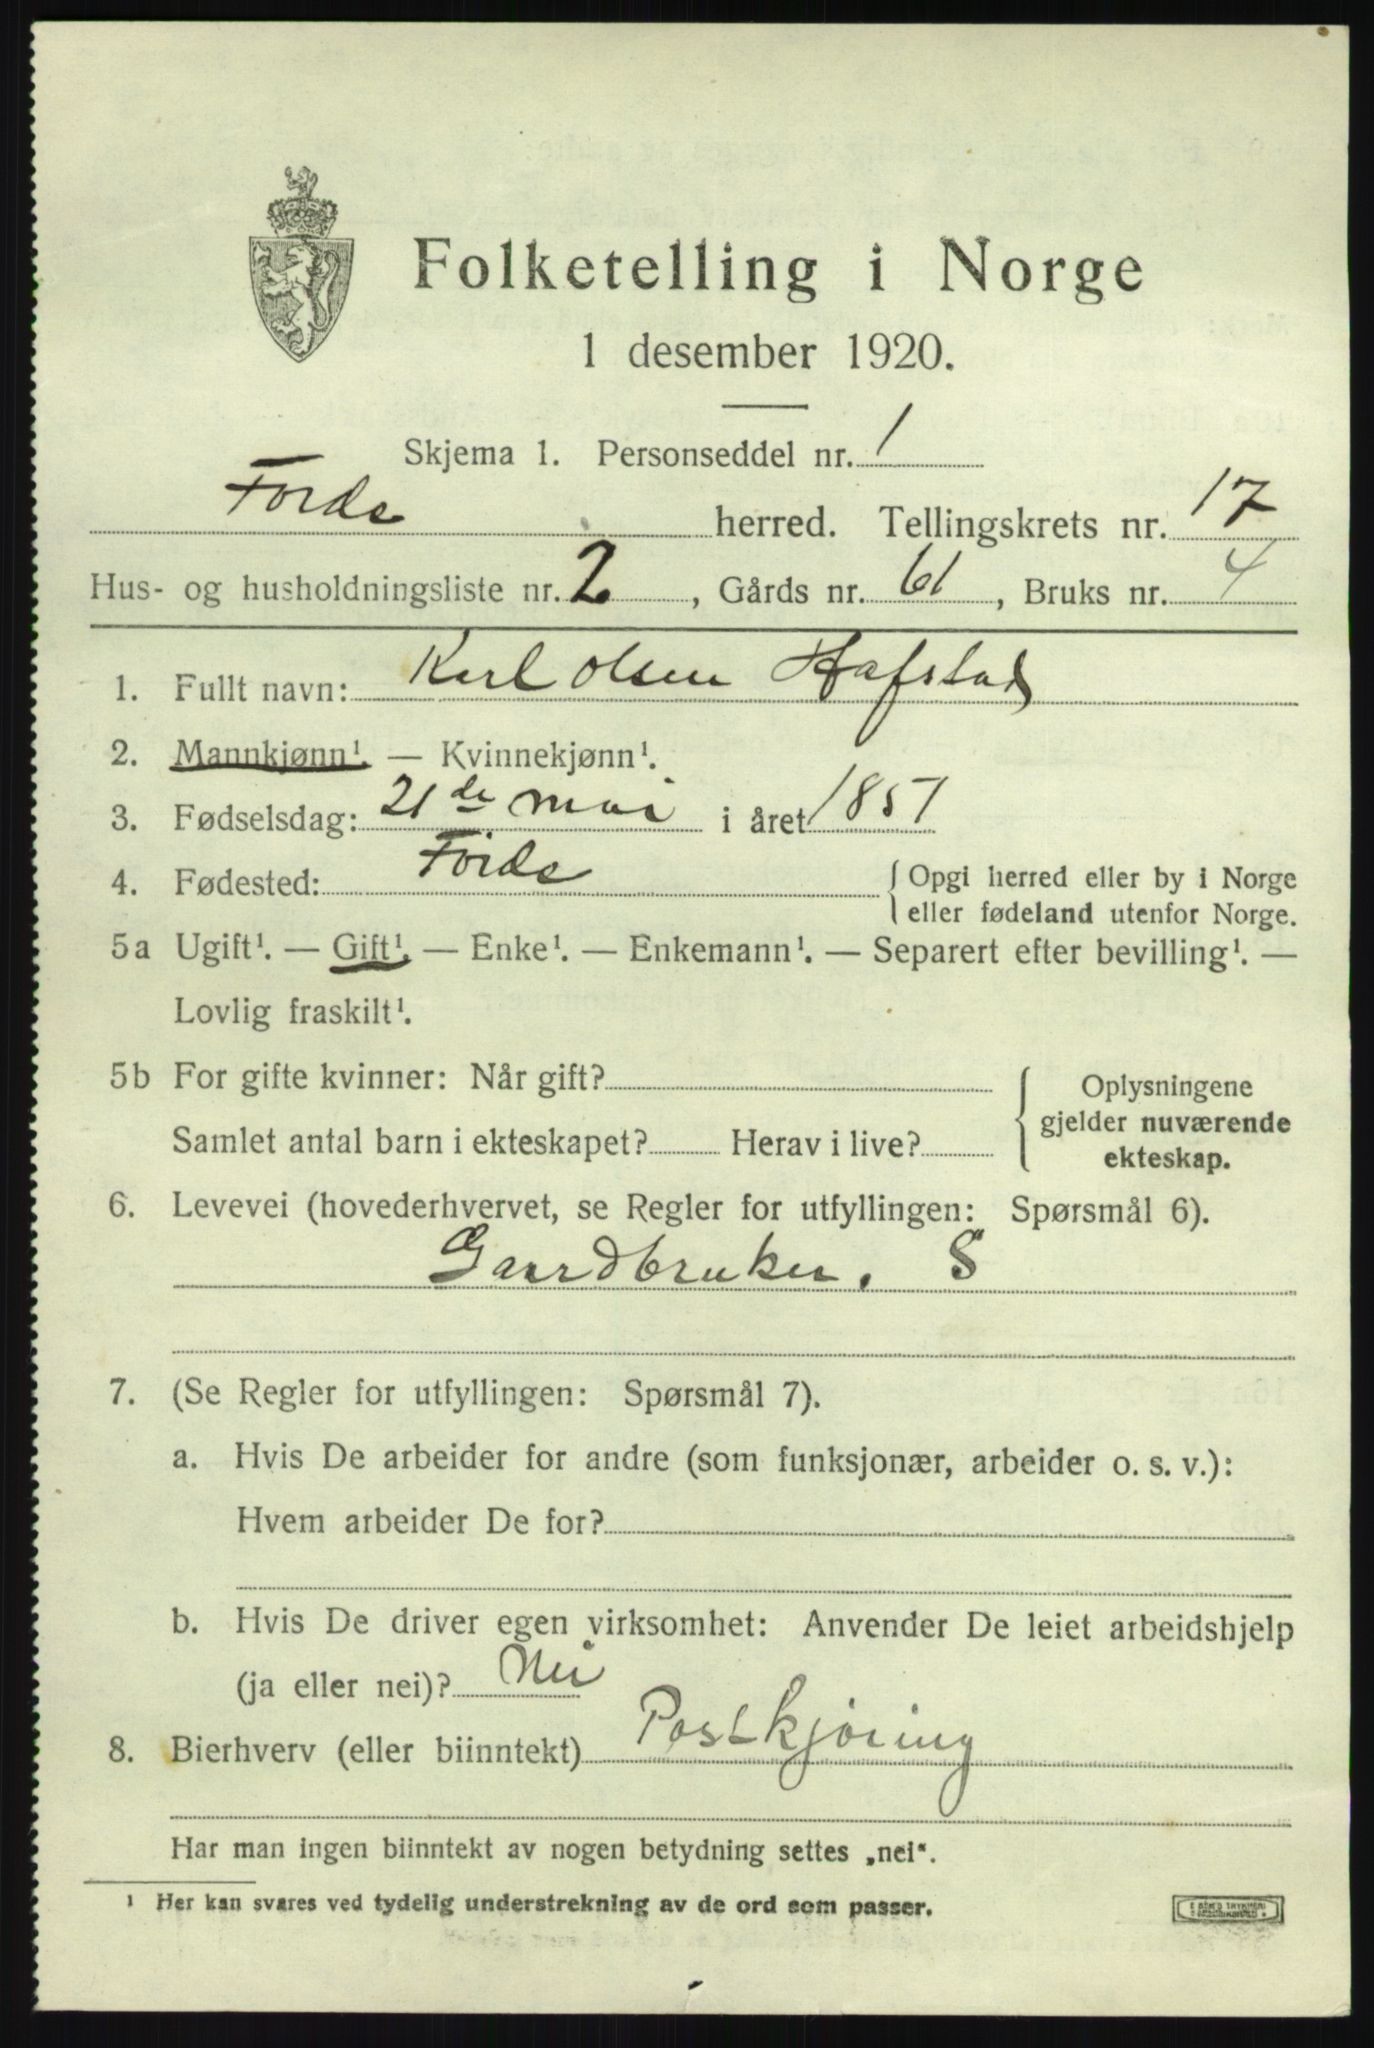 Folketelling i Norge
1 desember 1920.
Skjema 1. Personseddel nr. 1
Førde herred. Tellingskrets nr. 17
Hus- og husholdningsliste nr. 2, Gårds nr. 61, Bruks nr. 4
1. Fullt navn: Karl Olsen Hafstad
2. Mannkjønn¹. — Kvinnekjønn¹.
3. Fødselsdag: 21de mai i året 1857
4. Fødested: Førde { Opgi herred eller by i Norge
eller fødeland utenfor Norge.
5a Ugift¹. — Gift¹. — Enke¹. — Enkemann¹. — Separert efter bevilling¹. —
Lovlig fraskilt¹.
5b For gifte kvinner: Når gift? { Oplysningene
gjelder nuværende
Samlet antal barn i ekteskapet? Herav i live? ekteskap.
6. Levevei (hovederhvervet, se Regler for utfyllingen: Spørsmål 6).
Gaardbruker. S
7. (Se Regler for utfyllingen: Spørsmål 7).
a. Hvis De arbeider for andre (som funksjonær, arbeider o. s. v.):
Hvem arbeider De for?
b. Hvis De driver egen virksomhet: Anvender De leiet arbeidshjelp
(ja eller nei)? Nei
8. Bierhverv (eller biinntekt) Postkjöring
Har man ingen biinntekt av nogen betydning settes „nei“.
¹ Her kan svares ved tydelig understrekning av de ord som passer.